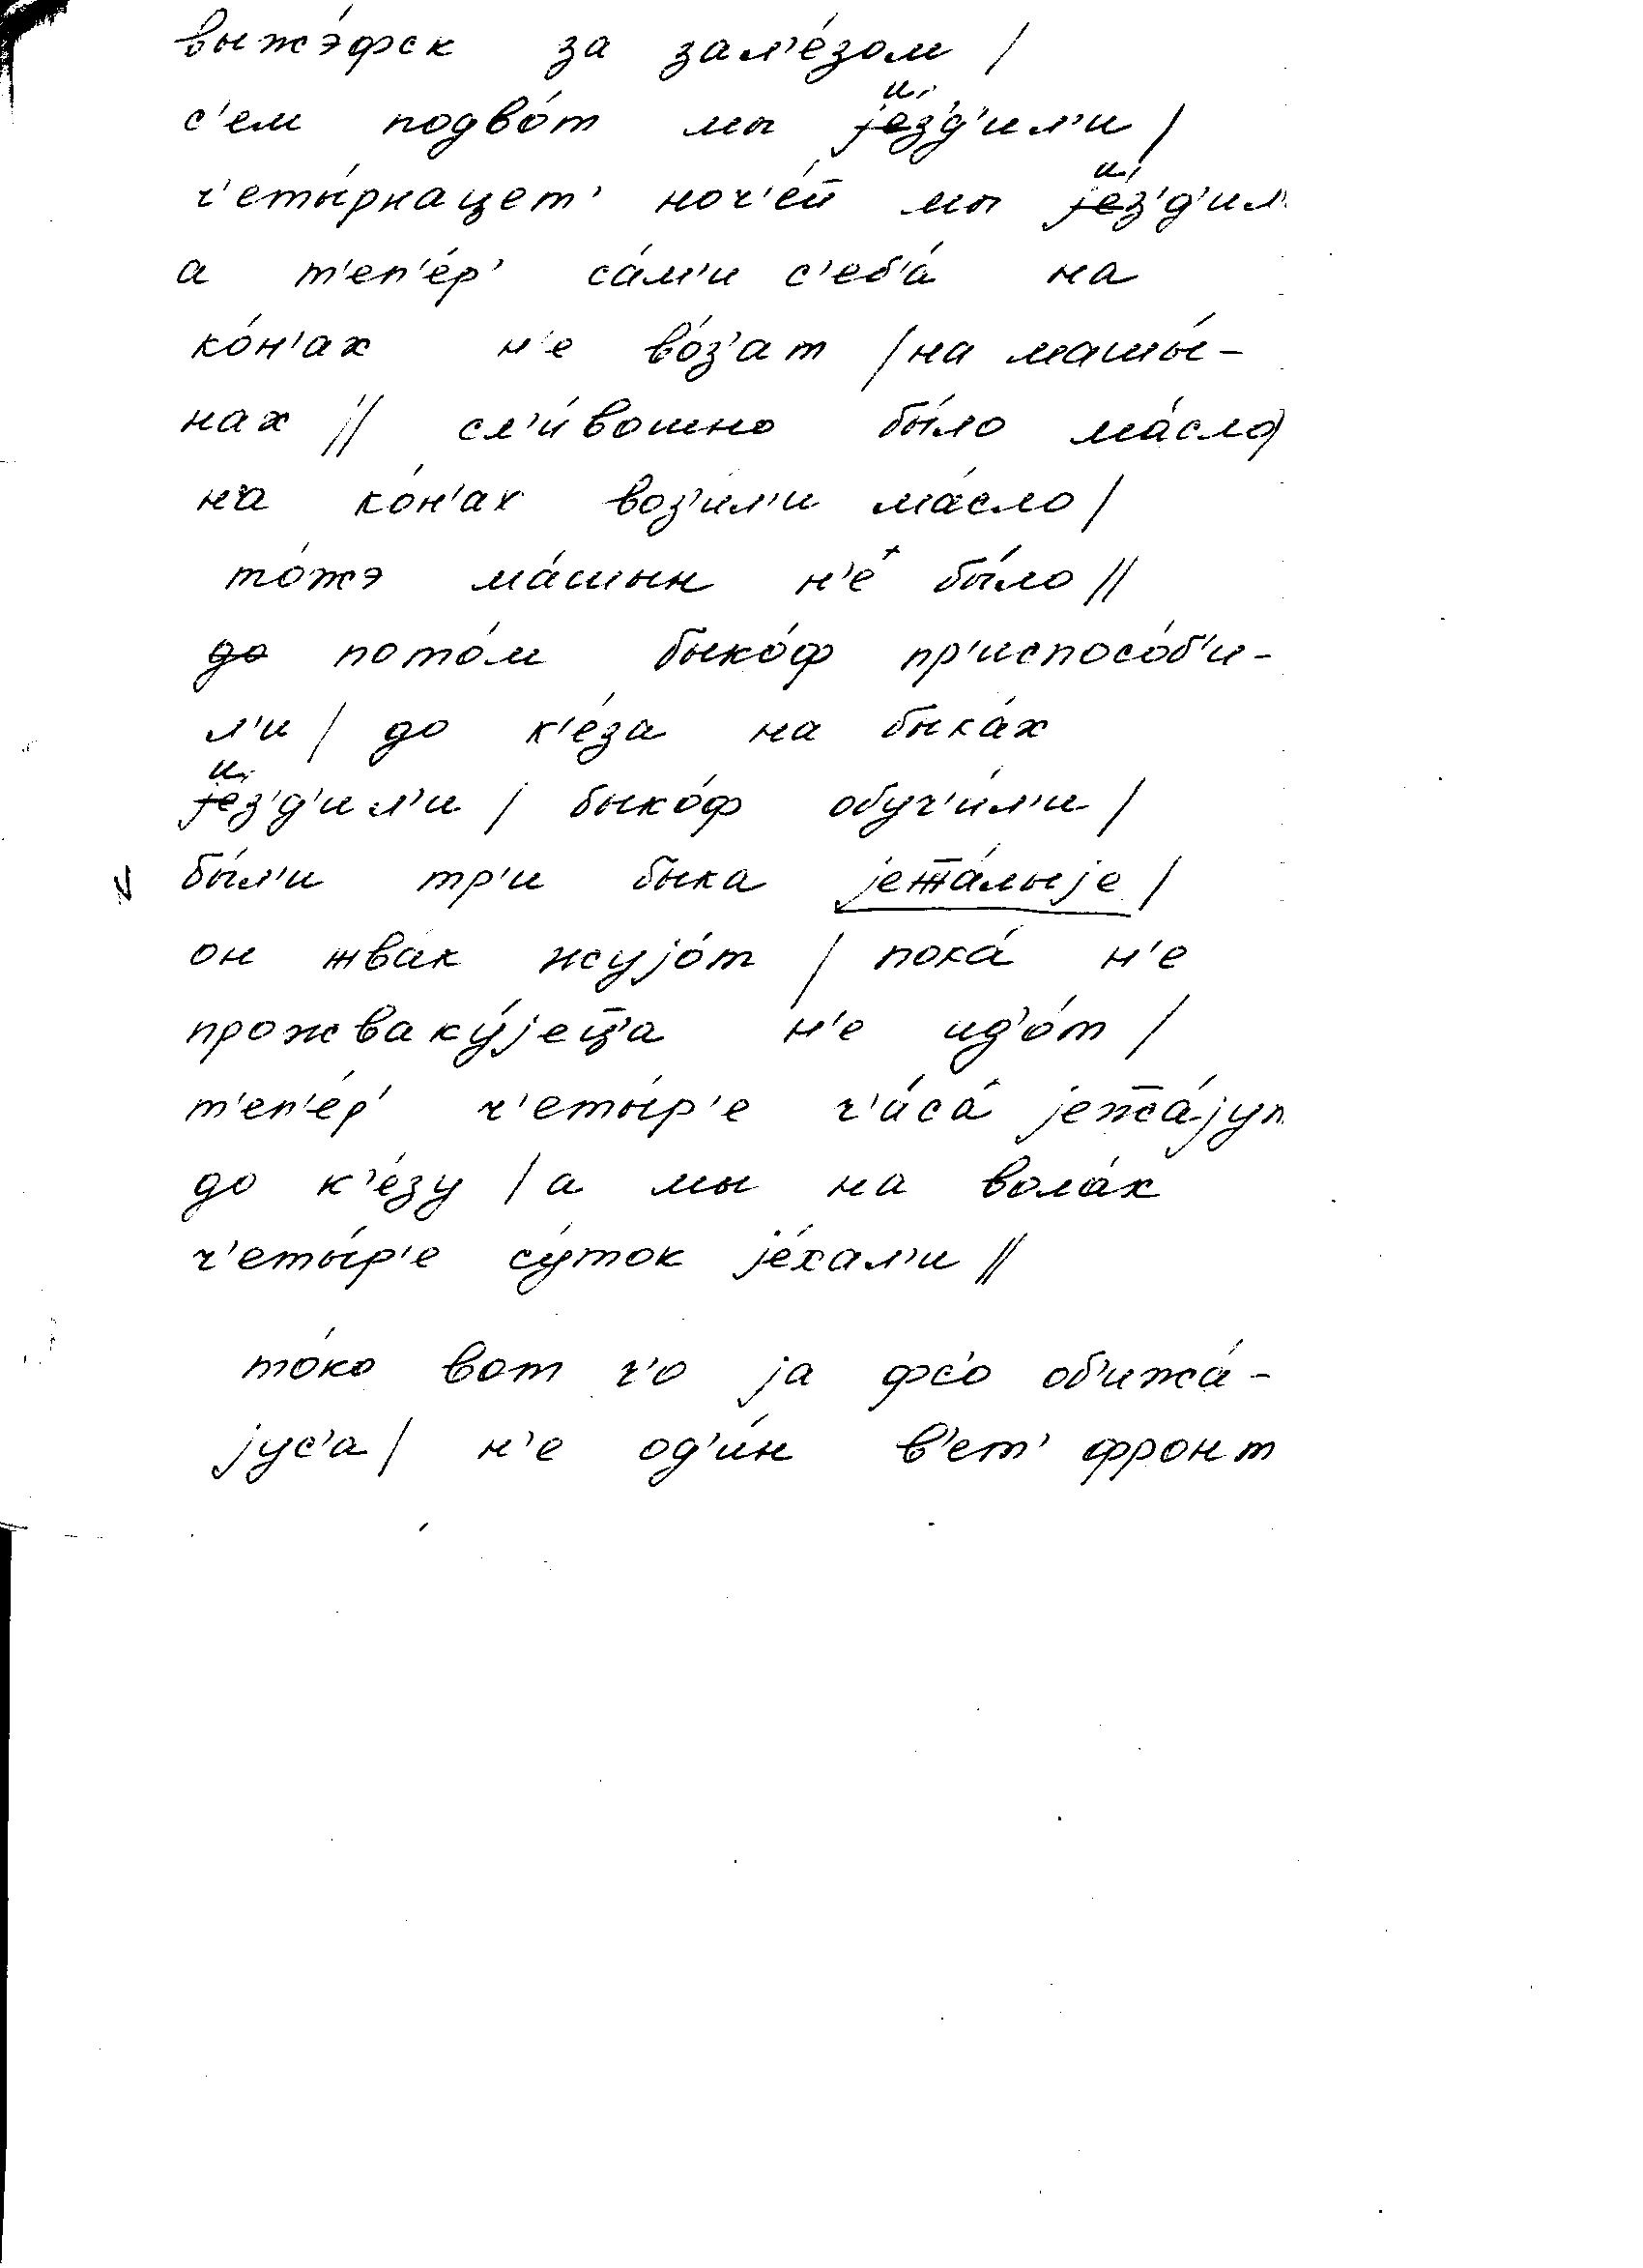 выжэ́фск за зал'е́зом /
с'ем подво́т мы и́з'д'ил'и /
ч'еты́рнацет' ноч'е́й мы и́з'д'ил'
а т'еп'е́р' са́м'и с'еб'а́ на
ко́н'ах н'е во́з'ат / на машы́-
нах // сл'и́вошно бы́ло ма́сло /
на ко́н'ах воз'и́л'и ма́сло /
то́жэ ма́шын н'е́ бы́ло //
потом быко́ф пр'испосо́б'и-
л'и / до к'е́за на быка́х
и́з'д'ил'и / быко́ф обуч'и́л'и /
бы́л'и тр'и быка јежжа́лыје /
он жвак жују́от / пока́ н'е
прожваку́јеца н'е ид'о́т /
т'еп'е́р' ч'еты́р'е ч'а́са́ јежжа́јут
до к'е́зу / а мы на вола́х
ч'еты́р'е су́ток је́хал'и //
то́ко вот ч'о ја фс'о об'ижа́-
јус'а / н'е од'и́н в'ет' фронт